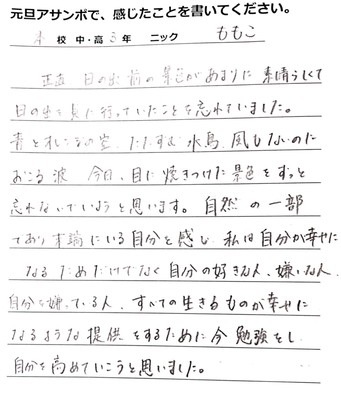 元旦アサンポで、感じたことを書いてください。
本 校 中・高 3 年 ニック ももこ
正直 日の出前の景色があまりに 素晴らしくて
日の出を見に行っていたことを忘れていました。
青とオレンジの空、たたずむ水鳥、風もないのに
おこる波 今日、目に焼きつけた景色をずっと
忘れないでいようと思います。自然の一部
であり末端にいる自分を感じ 私は自分が幸せに
なるためだけでなく自分の好きな人、嫌いな人、
自分を嫌っている人、すべての生きるものが幸せに
なるような提供をするために今 勉強をし
自分を高めていこうと思いました。